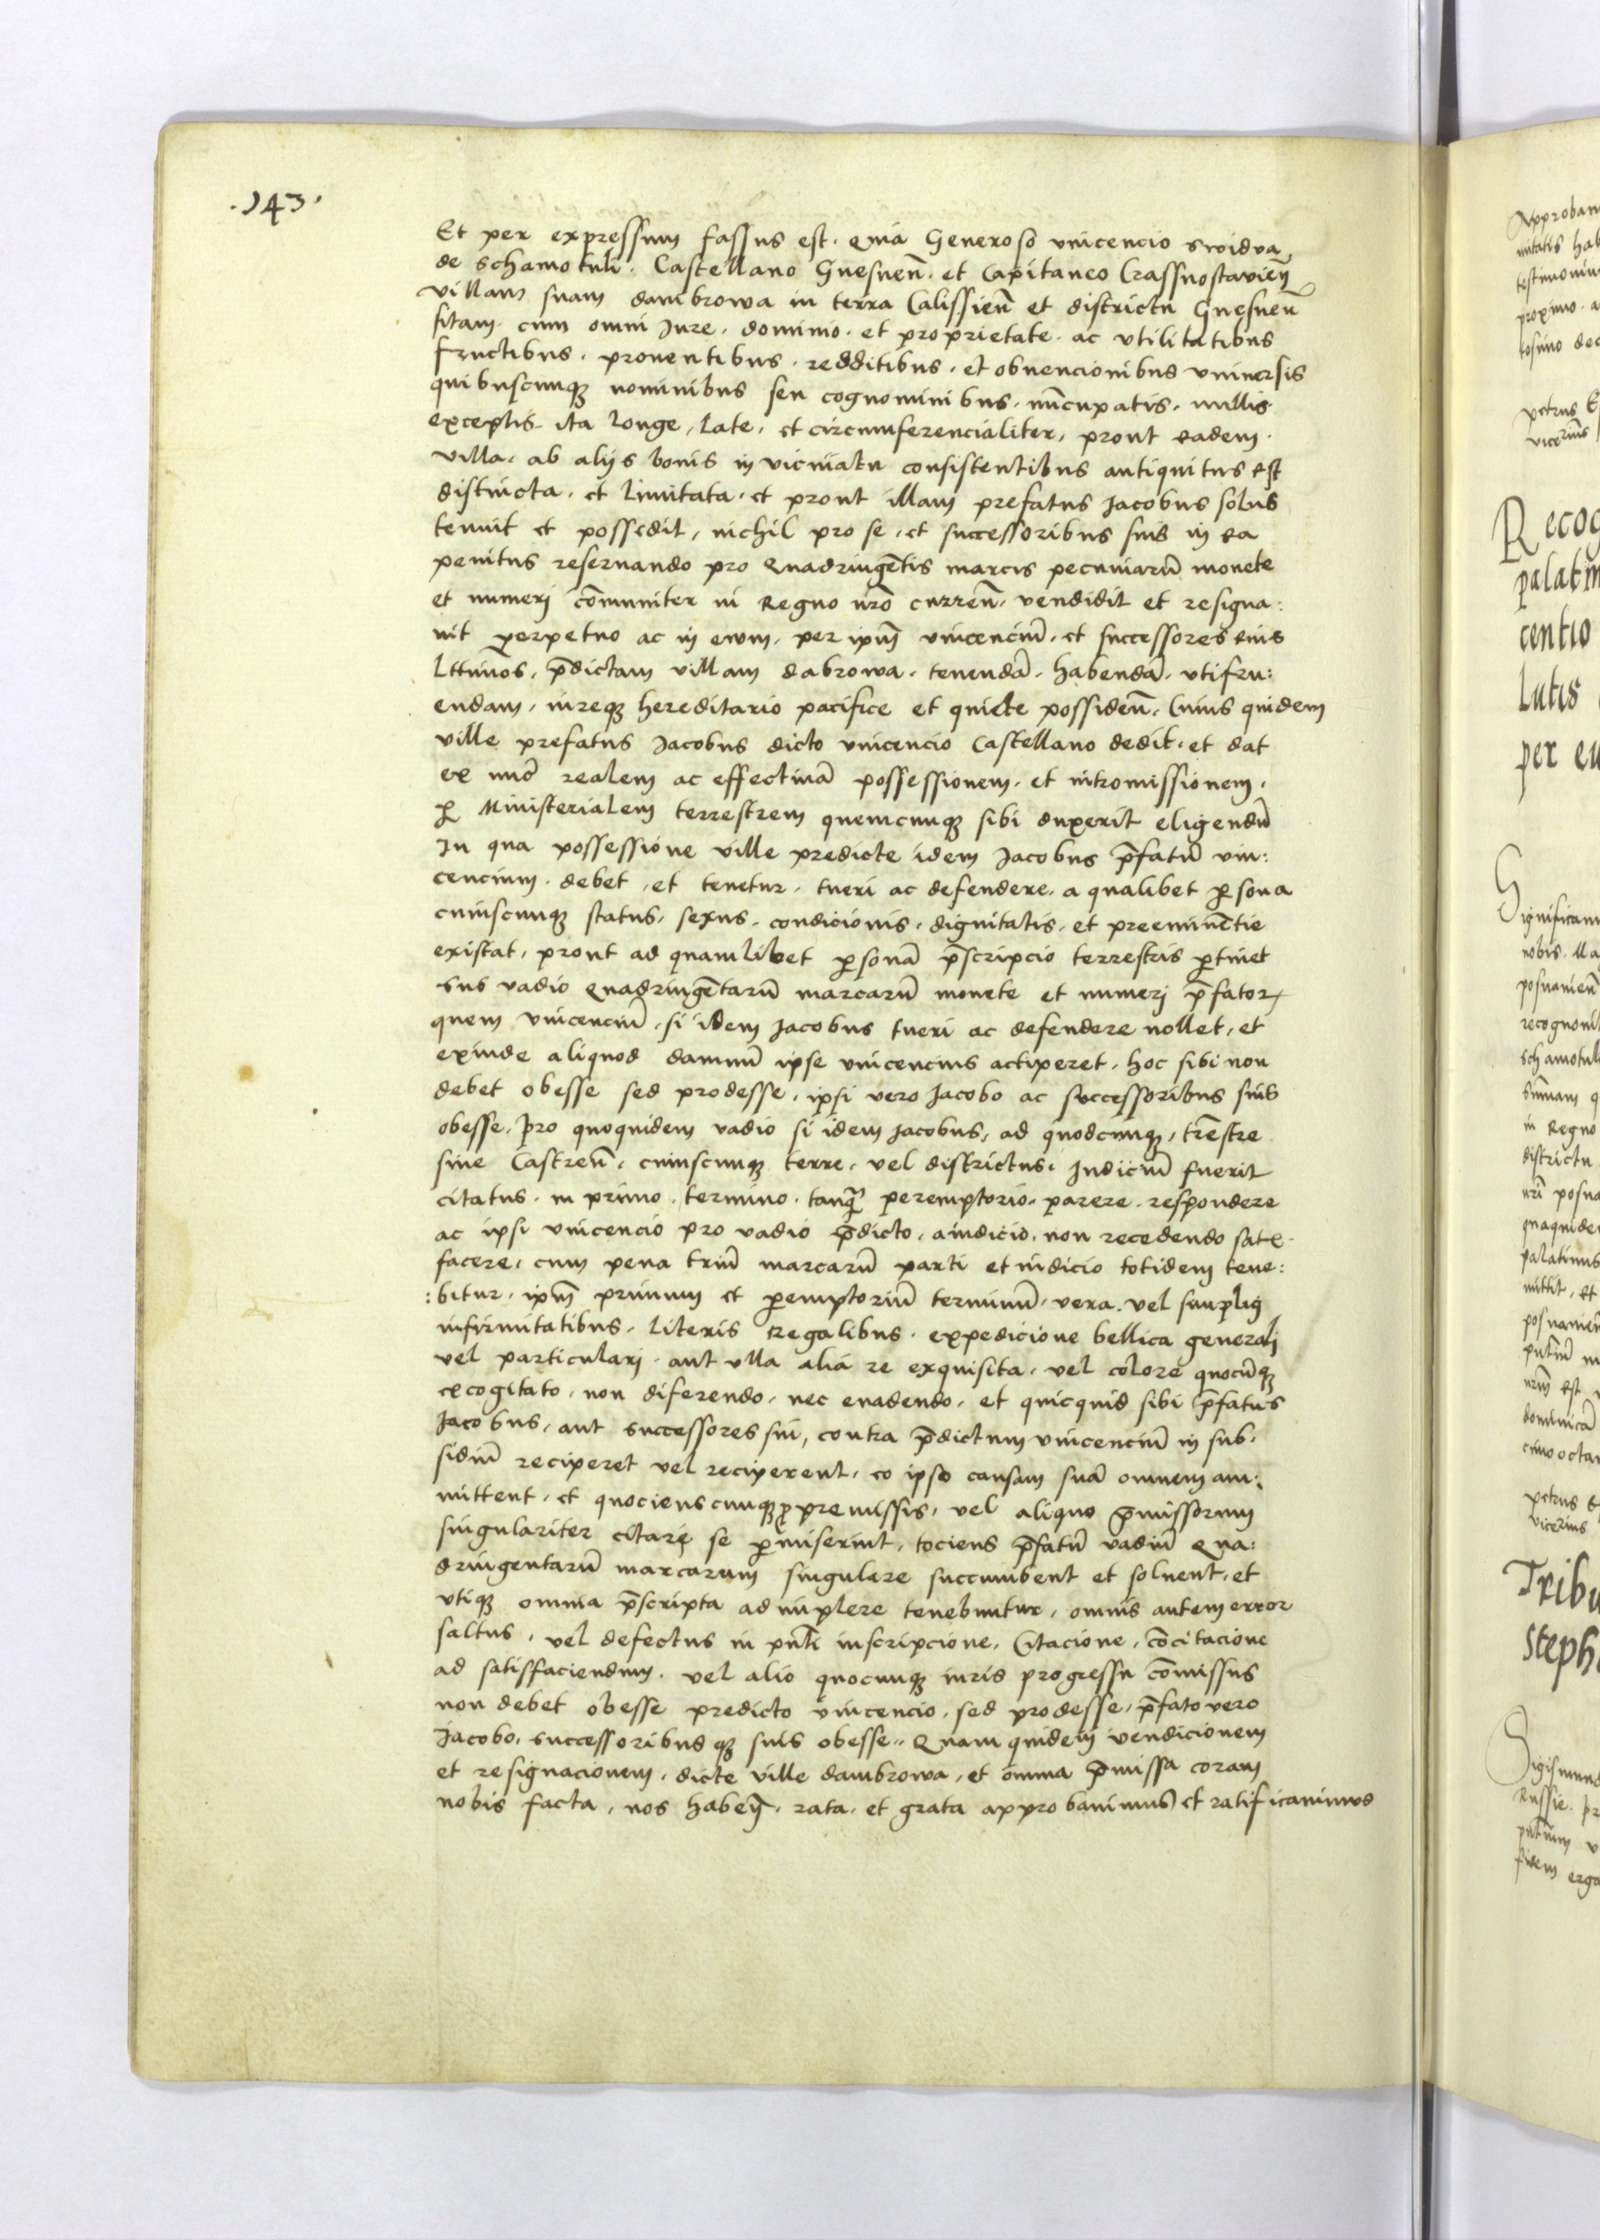 .143.
Et per expressum fassus est. Quia Generoso vincencio swidva
de schamotuli. Castellano Gnesneñ. et Capitaneo Crassnostavieñ
villam suam dambrowa in terra Calissieñ et districtu Gnesneñ
sitam. cum omni Jure. dominio. et proprietate. ac vtilitatibus
fructibus. prouentibus. redditibus. et obuencionibus vniuersis
quibuscunqꝫ nominibus seu cognominibus. nūcupatis. nullis
exceptis. ita longe, late, et circumferencialiter, prout eadem.
villa. ab alijs bonis in vicinatu consistentibus antiquitus est
distincta. et limitata. et prout illam prefatus Jacobus solus
tenuit et possedit, nichil pro se, et successoribus suis in ea
penitus reseruando pro Quadringētis marcis pecuniarū monete
et numeri cōmuniter in Regno nr̄o curreñ. vendidit et resigna:
uit perpetuo ac in ewm. per ip̄m vincenciū. et successores eius
Lttimos. p̄dictam villam dabrowa. tenendā. habendā. vtifru:
endam. iureqꝫ hereditario pacifice et quiete possideñ. Cuius quidem
ville prefatus Jacobus dicto vincencio Castellano dedit. et dat
ex nūc realem ac effectiuā possessionem. et intromissionem.
ꝑ Ministerialem terrestrem quemcunqꝫ sibi duxerit eligendū
In qua possessione ville predicte idem Jacobus p̄fatū vin:
cencium. debet, et tenetur. tueri ac defendere. a qualibet ꝑsona
cuiuscunqꝫ status. sexus. condicionis. dignitatis. et preeminētie
existat, prout ad quamlibet ꝑsonā p̄scripcio terrestris ꝑtinet
sub vadio Quadringētarū marcarū monete et numeri p̄fatoꝝ
quem vincenciū. si idem Jacobus tueri ac defendere nollet, et
exinde aliquod damnū ipse vincencius acciperet. hoc sibi non
debet obesse sed prodesse. ipsi vero Jacobo ac successoribus suis
obesse. Pro quoquidem vadio si idem Jacobus, ad quodcunqꝫ, tr̄estre
siue Castreñ. cuiuscunqꝫ terre. vel districtus. Judiciū fuerit
citatus. in primo. termino. tanqꝫ peremptorio. parere. respondere
ac ipsi vincencio pro vadio p̄dicto. aiudicio. non recedendo satis
facere. cum pena triū marcarū parti et iudicio totidem tene:
:bitur. ip̄m primum et ꝑemptoriū terminū. vera. vel simplici
infirmitatibus. literis regalibus. expedicione bellica generali
vel particulari. aut vlla alia re exquisita. vel colore quocūqꝫ
excogitato. non diferendo. nec euadendo. et quicquid sibi p̄fatus
Jacobus. aut successores sui, contra p̄dictum vincenciū in sub.
sidiū reciperet vel reciperent. eo ipso causam suā omnem am:
mittent. et quocienscunqꝫ pro premissis. vel aliquo p̄missorum
singulariter citari se ꝑmiserint, tociens p̄fatū vadiū Qua:
dringentarū marcarum singulare succumbent et soluent. et
vtiqꝫ omnia p̄scripta adimplere tenebuntur, omnis autem error
saltus. vel defectus in pn̄ti inscripcione. Citacione, cōcitacione
ad satisfaciendum. vel alio quocunqꝫ iuris progressu cōmissus
non debet obesse predicto vincencio. sed prodesse. p̄fato vero
Jacobo. successoribusqꝫ suis obesse. Quam quidem vendicionem
et resignacionem. dicte ville dambrowa, et omnia p̄missa coram
nobis facta, nos habeñ. rata. et grata approbauimus et ratificauimus
Recog
palatin
centio
Lutis
per eu
Tribu
Steph